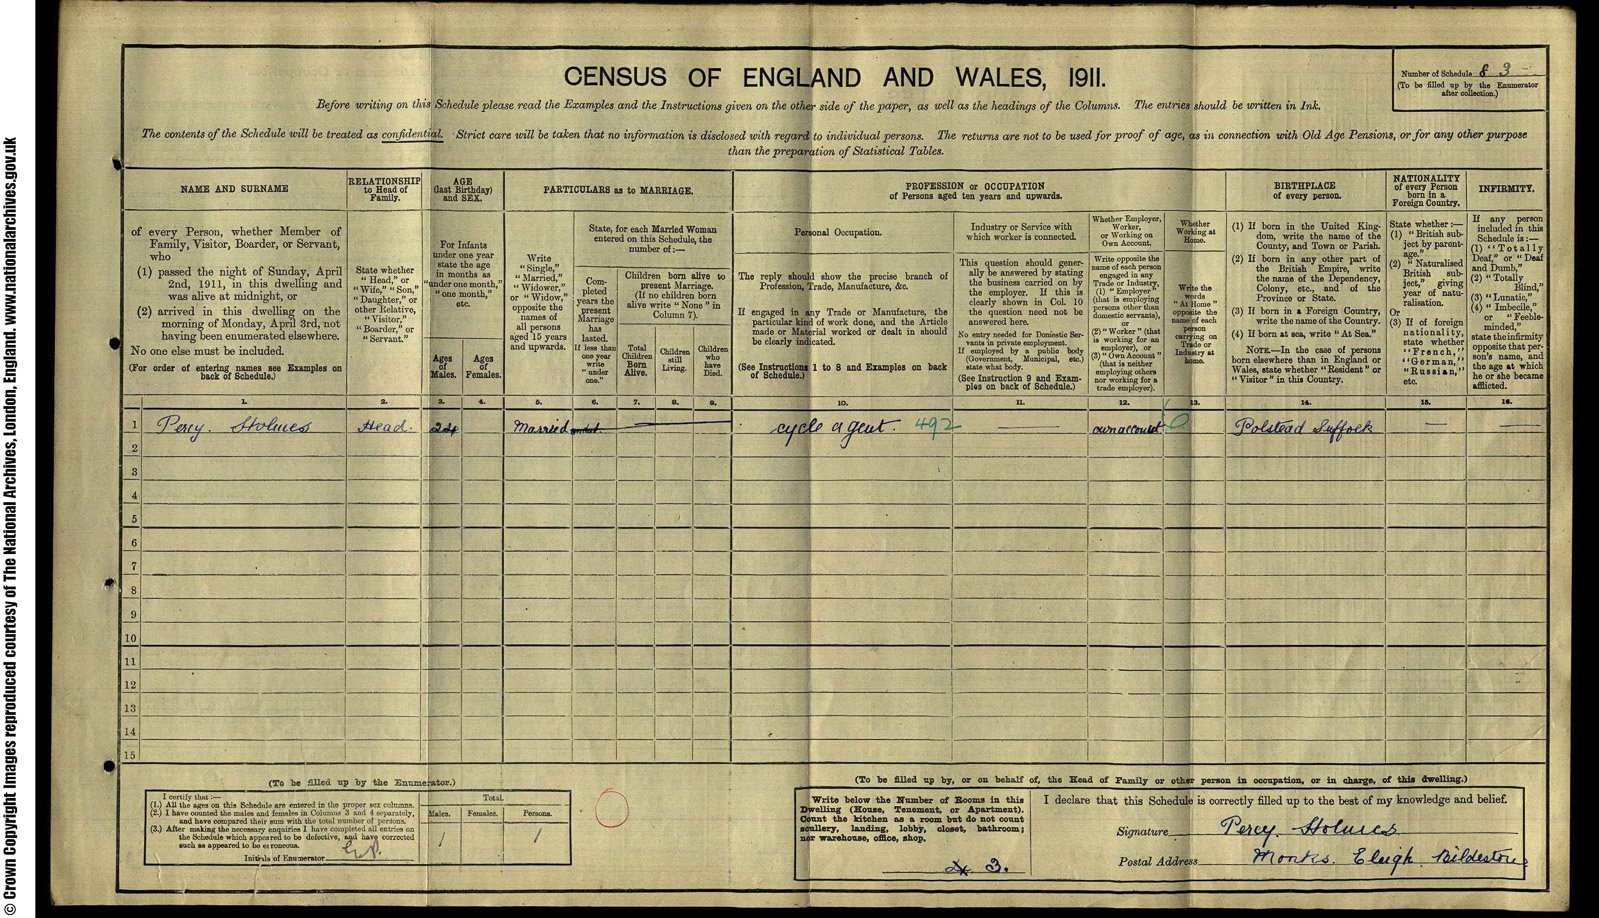 © Crown Copyright Images reproduced courtesy of The National Archives, London, England. www.nationalarchives.gov.uk
CENSUS OF ENGLAND AND WALES, 1911.
Number of Schedule 83
(To be filled up by the Enumerator after collection.)
Before writing on this Schedule please read the Examples and the Instructions given on the other side of the paper, as well as the headings of the Columns. The entries should be written in Ink.
The contents of the Schedule will be treated as confidential. Strict care will be taken that no information is disclosed with regard to individual persons. The returns are not to be used for proof of age, as in connection with Old Age Pensions, or for any other purpose
than the preparation of Statistical Tables.
NAME AND SURNAME
of every Person, whether Member of
Family, Visitor, Boarder, or Servant,
who
(1) passed the night of Sunday, April
2nd, 1911, in this dwelling and
was alive at midnight, or
(2) arrived in this dwelling on the
morning of Monday, April 3rd, not
having been enumerated elsewhere.
No one else must be included.
(For order of entering names see Examples on
back of Schedule.)
RELATIONSHIP
to Head of
Family.
State whether
"Head," or
"Wife," "Son,"
"Daughter," or
other Relative,
"Visitor,"
"Boarder," or
"Servant."
AGE
(last Birthday)
and SEX.
For Infants
under one year
state the age
in months as
"under one month,"
"one month,"
etc.
Ages
of
Males.
Ages
of
Females.
PARTICULARS as to MARRIAGE.
Write
"Single,"
"Married,"
"Widower,"
or "Widow,"
opposite the
names of
all persons
aged 15 years
and upwards.
State, for each Married Woman
entered on this Schedule, the
number of:—
Com-
pleted
years the
present
Marriage
has
lasted.
If less than
one year
write
"under
one."
Children born alive to
present Marriage.
(If no children born
alive write "None" in
Column 7).
Total
Children
Born
Alive.
Children
still
Living.
Children
who
have
Died.
PROFESSION or OCCUPATION
of Persons aged ten years and upwards.
Personal Occupation.
The reply should show the precise branch of
Profession, Trade, Manufacture, &c.
If engaged in any Trade or Manufacture, the
particular kind of work done, and the Article
made or Material worked or dealt in should
be clearly indicated.
(See Instructions 1 to 8 and Examples on back
of Schedule.)
Industry or Service with
which worker is connected.
This question should gener-
ally be answered by stating
the business carried on by
the employer. If this is
clearly shown in Col. 10
the question need not be
answered here.
No entry needed for Domestic Ser-
vants in private employment.
If employed by a public body
(Government, Municipal, etc.)
state what body.
(See Instruction 9 and Exam-
ples on back of Schedule.)
Whether Employer,
Worker,
or Working on
Own Account.
Write opposite the
name of each person
engaged in any
Trade or Industry,
(1) "Employer"
(that is employing
persons other than
domestic servants),
or
(2) "Worker" (that
is working for an
employer), or
(3) "Own Account"
(that is neither
employing others
nor working for a
trade employer).
Whether
Working at
Home.
Write the
words
"At Home"
opposite the
name of each
person
carrying on
Trade or
Industry at
home.
BIRTHPLACE
of every person.
(1) If born in the United King-
dom, write the name of the
County, and Town or Parish.
(2) If born in any other part of
the British Empire, write
the name of the Dependency,
Colony, etc., and of the
Province or State.
(3) If born in a Foreign Country,
write the name of the Country.
(4) If born at sea, write "At Sea."
NOTE.—In the case of persons
born elsewhere than in England or
Wales, state whether "Resident" or
"Visitor" in this Country.
NATIONALITY
of every Person
born in a
Foreign Country.
State whether :—
(1) "British sub-
ject by parent-
age."
(2) "Naturalised
British sub-
ject," giving
year of natu-
ralisation.
Or
(3) If of foreign
nationality,
state whether
"French,"
"German,"
"Russian,"
etc.
INFIRMITY.
If any person
included in this
Schedule is:—
(1) "Totally
Deaf," or "Deaf
and Dumb,"
(2) "Totally
Blind,"
(3) "Lunatic,"
(4) "Imbecile,"
or "Feeble-
minded,"
state the infirmity
opposite that per-
son's name, and
the age at which
he or she became
afflicted.
1. 2. 3. 4. 5. 6. 7. 8. 9. 10. 11. 12. 13. 14. 15. 16.
1 Percy. Holmes Head. 24 Married — cycle agent 492 — own account 0 Polstead Suffolk — —
2
3
4
5
6
7
8
9
10
11
12
13
14
15
(To be filled up by the Enumerator.)
I certify that:—
(1.) All the ages on this Schedule are entered in the proper sex columns.
(2.) I have counted the males and females in Columns 3 and 4 separately,
and have compared their sum with the total number of persons.
(3.) After making the necessary enquiries I have completed all entries on
the Schedule which appeared to be defective, and have corrected
such as appeared to be erroneous.
Initials of Enumerator
Total.
Males. Females. Persons.
1 1
(To be filled up by, or on behalf of, the Head of Family or other person in occupation, or in charge, of this dwelling.)
Write below the Number of Rooms in this
Dwelling (House, Tenement, or Apartment).
Count the kitchen as a room but do not count
scullery, landing, lobby, closet, bathroom;
nor warehouse, office, shop.
3.
I declare that this Schedule is correctly filled up to the best of my knowledge and belief.
Signature Percy. Holmes
Postal Address Monks. Eleigh. Bildeston